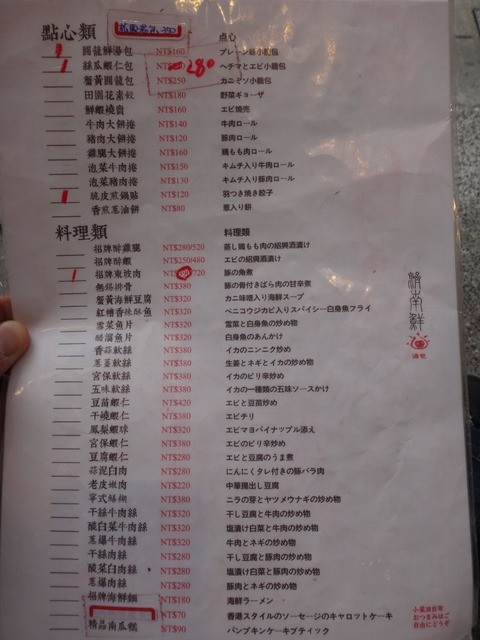 點心類 點心
圓籠鮮湯包 NT$160 プレーン小籠包
絲瓜蝦仁包 280 ヘチマとエビ小籠包
蟹黃圓籠包 NT$250 カニミソ小籠包
田園花素餃 NT$180 野菜ギョーザ
鮮蝦燒賣 NT$160 エビ焼売
牛肉大餅捲 NT$140 牛肉ロール
豬肉大餅捲 NT$120 豚肉ロール
雞腿大餅捲 NT$160 鶏もも肉ロール
泡菜牛肉捲 NT$150 キムチ入り牛肉ロール
泡菜豬肉捲 NT$130 キムチ入り豚肉ロール
脆皮煎鍋貼 NT$120 羽つき焼き餃子
香煎蔥油餅 NT$80 葱入り餅
料理類 料理類
招牌醉雞腿 NT$280/520 蒸し鶏もも肉の紹興酒漬け
招牌醉蝦 NT$250/480 エビの紹興酒漬け
招牌東坡肉 /720 豚の角煮
無錫排骨 NT$380 豚の骨付きばら肉の甘辛煮
蟹黃海鮮豆腐 NT$320 カニ味噌入り海鮮スープ
紅糟香辣酥魚 NT$320 ベニコウジカビ入りスパイシー白身魚フライ
雪菜魚片 NT$320 雪菜と白身魚の炒め物
醋溜魚片 NT$320 白身魚のあんかけ
香蒜軟絲 NT$380 イカのニンニク炒め
蔥薑軟絲 NT$380 生姜とネギとイカの炒め物
宮保軟絲 NT$380 イカのピリ辛炒め
五味軟絲 NT$380 イカの一種類の五味ソースかけ
豆苗蝦仁 NT$420 エビと豆苗炒め
干燒蝦仁 NT$380 エビチリ
鳳梨蝦球 NT$320 エビマヨパイナップル添え
宮保蝦仁 NT$380 エビのピリ辛炒め
豆腐蝦仁 NT$280 エビと豆腐のうま煮
蒜泥白肉 NT$280 にんにくタレ付きの豚バラ肉
老皮嫩肉 NT$220 中華揚出し豆腐
寧式鱔糊 NT$380 ニラの芽とヤツメウナギの炒め物
干絲牛肉絲 NT$320 干し豆腐と牛肉の炒め物
酸白菜牛肉絲 NT$320 塩漬け白菜と牛肉の炒め物
蔥爆牛肉絲 NT$320 牛肉とネギの炒め物
干絲肉絲 NT$280 干し豆腐と豚肉の炒め物
酸菜白肉絲 NT$280 塩漬け白菜と豚肉の炒め物
蔥爆肉絲 NT$280 豚肉とネギの炒め物
招牌海鮮鍋 NT$180 海鮮ラーメン
NT$70 香港スタイルのソーセージのキャロットケーキ
精品南瓜糕 NT$90 パンプキンケーキプティック
濟南鮮
湯包
小菜油自取
おつまみはご
自由にどうぞ